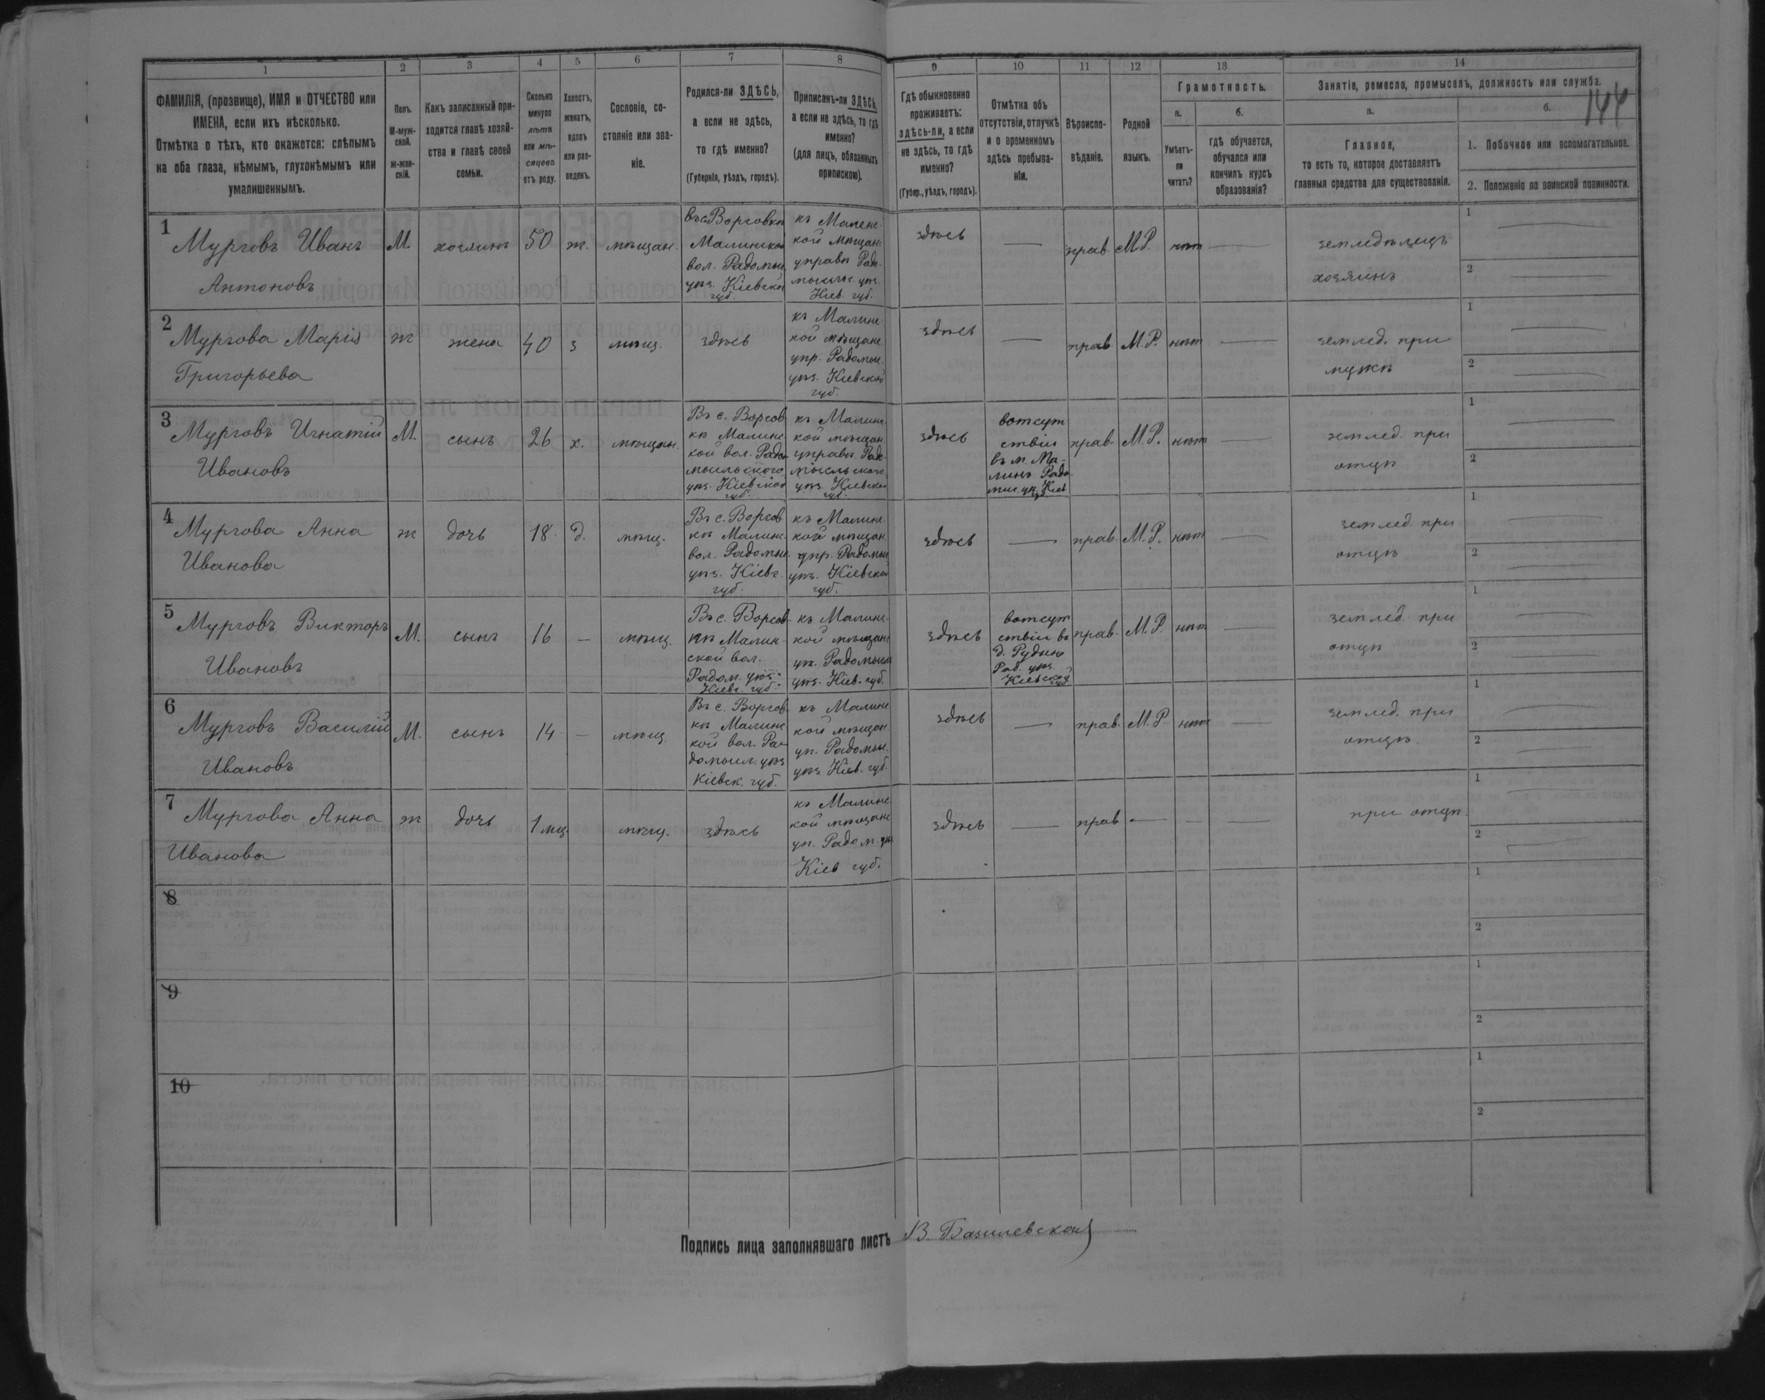 144
1 2 3 4 5 6 7 8 9 10 11 12 13 14
ФАМИЛІЯ, (прозвище), ИМЯ и ОТЧЕСТВО или
ИМЕНА, если ихъ нѣсколько.
Отмѣтка о тѣхъ, кто окажется: слѣпымъ
на оба глаза, нѣмымъ, глухонѣмымъ или
умалишеннымъ.
Полъ.
М-муж-
ской.
ж-жен-
скій.
Какъ записанный при-
ходится главѣ хозяй-
ства и главѣ своей
семьи.
Сколько
минуло
лѣтъ
или мѣ-
сяцевъ
отъ роду.
Холостъ,
женатъ,
вдовъ
или раз-
веденъ.
Сословіе, со-
стояніе или зва-
ніе.
Родился-ли ЗДѢСЬ,
а если не здѣсь,
то гдѣ именно?
(Губернія, уѣздъ, городъ).
Приписанъ-ли ЗДѢСЬ,
а если не здѣсь, то гдѣ
именно?
(для лицъ, обязанныхъ
припискою).
Гдѣ обыкновенно
проживаетъ:
здѣсь-ли, а если
не здѣсь, то гдѣ
именно?
(Губер., уѣздъ, городъ).
Отмѣтка объ
отсутствіи, отлучкѣ
и о временномъ
здѣсь пребыва-
ніи.
Вѣроиспо-
вѣданіе.
Родной
языкъ.
Грамотность.
а.
Умѣетъ-
ли
читать?
б.
гдѣ обучается,
обучался или
кончилъ курсъ
образованія?
Занятіе, ремесло, промыселъ, должность или служба.
а.
Главное,
то есть то, которое доставляетъ
главныя средства для существованія.
б.
1. Побочное или вспомогательное.
2. Положеніе по воинской повинности.
1
Мурговъ Иванъ
Антоновъ
М.
хозяинъ
50
ж.
мѣщан.
въ с. Ворсовкѣ
Малинской
вол. Радомыс.
уѣз. Кіевской
губ.
къ Малинс
кой мѣщан.
управѣ Радо-
мысльс. уѣз.
Кіев. губ.
здѣсь
—
прав.
М.Р.
нѣт
—
земледѣлецъ
хозяинъ
1
2
2
Мургова Марія
Григорьева
ж
жена
40
з
мѣщ.
здѣсь
къ Малинс
кой мѣщанс
упр. Радомыс.
уѣз. Кіевской
губ.
здѣсь
—
прав
М.Р.
нѣт
—
землед. при
мужѣ
1
2
3
Мурговъ Игнатій
Ивановъ
М.
сынъ
26
х.
мѣщан.
Въ с. Ворсов
кѣ Малинс
кой вол. Радо
мысльского
уѣз. Кіевской
губ.
къ Малинс.
кой мѣщан.
управѣ. Радо
мысльского
уѣз. Кіевской
губ.
здѣсь
вотсут
ствіи
въ м. Ма-
линѣ Радо
мыс. уѣ. Кіев
прав.
М.Р.
нѣт
—
землед. при
отцѣ
1
2
4
Мургова Анна
Иванова
ж
дочь
18
д.
мѣщ.
Въ с. Ворсов
кѣ Малинс.
вол. Радомыс.
уѣз. Кіевс.
губ.
къ Малинс.
кой мѣщан.
упр. Радомыс
уѣз. Кіевской
губ.
здѣсь
—
прав.
М.Р.
нѣт
—
землед. при
отцѣ
1
2
5
Мурговъ Викторъ
Ивановъ
М.
сынъ
16
—
мѣщ.
Въ с. Ворсов-
кѣ Малин-
ской вол.
Радом. уѣз.
Кіевс. губ.
къ Малинс.
кой мѣщанс
уп. Радомысл
уѣз. Кіев. губ.
здѣсь
вотсут
ствіи въ
д. Рудни
Рад. уѣз.
Кіевской
губ.
прав.
М.Р.
нѣт
—
землед. при
отцѣ
1
2
6
Мурговъ Василій
Ивановъ
М.
сынъ
14
—
мѣщ
Въ с. Ворсов-
кѣ Малинс
кой вол. Ра-
домысл. уѣз
Кіевск. губ.
къ Малинс
кой мѣщан
уп. Радомыс.
уѣз. Кіев. губ.
здѣсь
—
прав.
М.Р
нѣт
—
землед. при
отцѣ.
1
2
7
Мургова Анна
Иванова
ж
дочь
1 мц.
мѣщ.
здѣсь
къ Малинс
кой мѣщанс
уп. Радом. уѣ
Кіев губ.
здѣсь
—
прав
—
—
—
при отцѣ
1
2
8
1
2
9
1
2
10
1
2
Подпись лица заполнявшаго листъ В. Базилевская